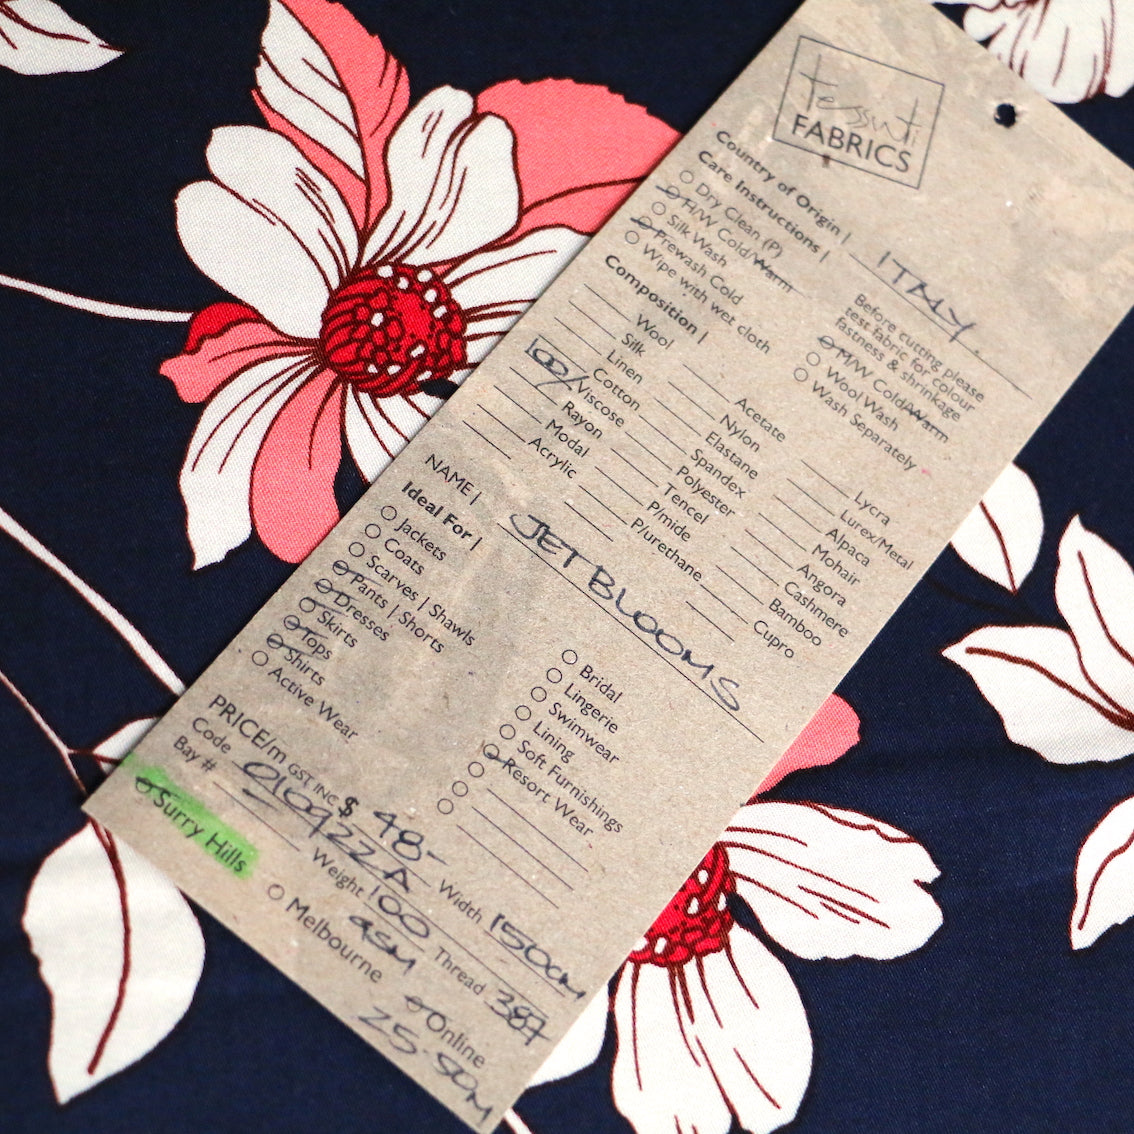 tessuti
FABRICS
Country of Origin | ITALY.
Care Instructions |
Dry Clean (P)
H/W Cold/Warm
Silk Wash
Prewash Cold
Wipe with wet cloth
Before cutting please
test fabric for colour
fastness & shrinkage
M/W Cold/Warm
Wool Wash
Wash Separately
Composition |
Wool
Silk
Linen
Cotton
Viscose
Rayon
Modal
Acrylic
Acetate
Nylon
Elastane
Spandex
Polyester
Tencel
P/mide
P/urethane
Lycra
Lurex/Metal
Alpaca
Mohair
Angora
Cashmere
Bamboo
Cupro
NAME | JET BLOOMS
Ideal For |
Jackets
Coats
Scarves | Shawls
Pants | Shorts
Dresses
Skirts
Tops
Shirts
Active Wear
Bridal
Lingerie
Swimwear
Lining
Soft Furnishings
Resort Wear
PRICE/m GST INC $ 48-
Code 010922A Width 150cm
Bay # Weight 100 gsm Thread 387
Surry Hills Melbourne Online
25.50m